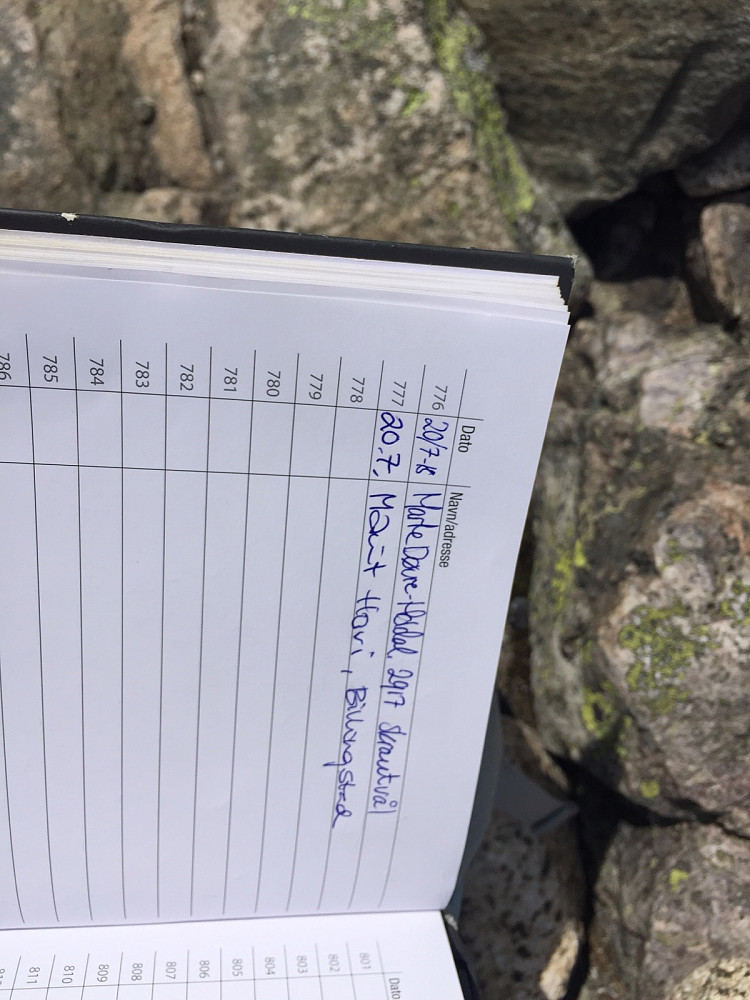 Dato Navn/adresse
776 20/7-18 Marte Dovre-Heldal, 2917 Skrautvål
777 20.7. Marit Hovi, Billingstad
778
779
780
781
782
783
784
785
786
Dato
801
802
803
804
805
806
807
808
809
810
811